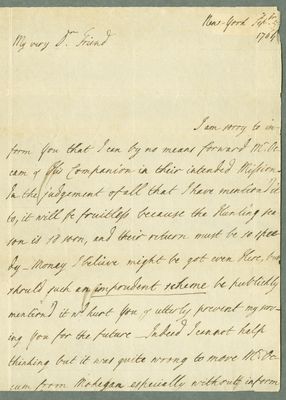 New-York Septr
My very Dr. Friend
I am sorry to in-
form you that I can by no means forward Mr. Oc-
cam & his Companion in their intended Mission.
In the judgement of all that I have mentiond it
to, it will be fruitless because the Hunting sea-
son is so soon, and their return must be so spee-
dy_ Money I believe might be got even Here, but
should such an imprudent scheme be publickly
mentiond it wd. hurt you & utterly prevent my serv-
ing you for the future _ Indeed I cannot help
thinking but it was quite wrong to move Mr. Oc-
cum from Mohegan especially without inform